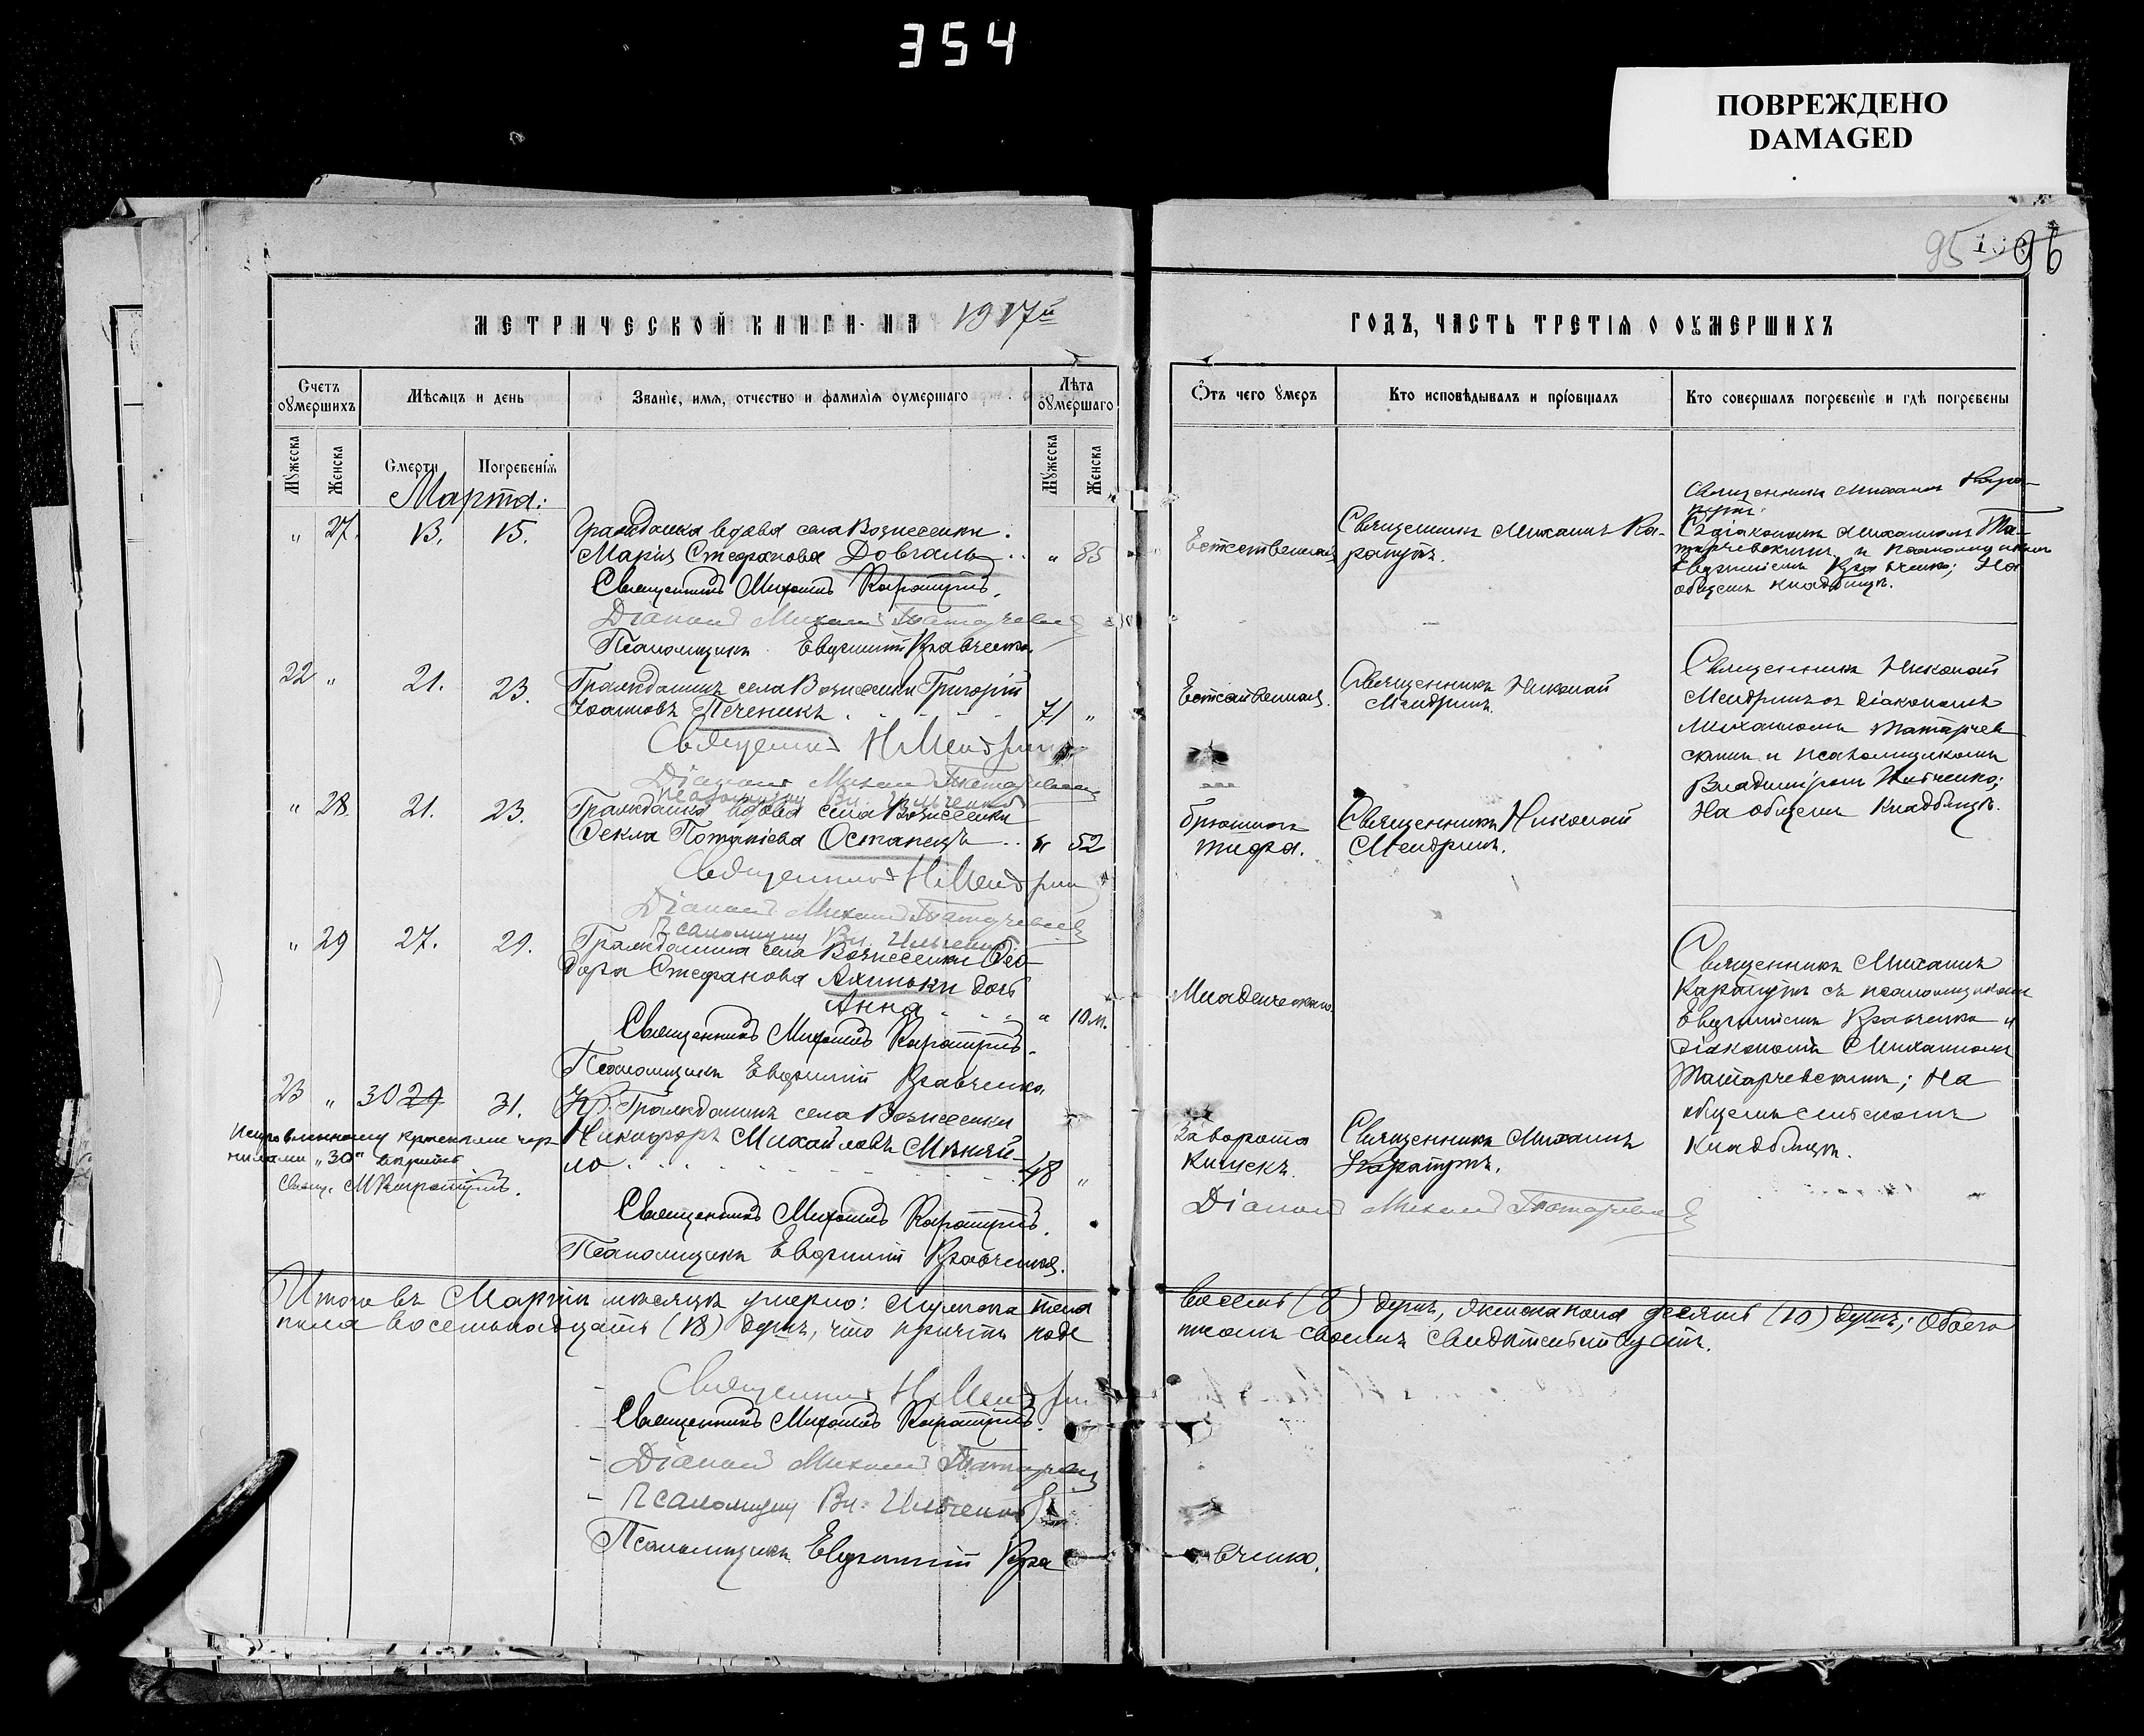 354
ПОВРЕЖДЕНО
DAMAGED
95
96
МЕТРИЧЕСКОЙ КНИГИ НА 1917й
ГОДЪ, ЧАСТЬ ТРЕТІЯ О ОУМЕРШИХЪ
Счетъ оумершихъ
Мѣсяцъ и день
Званіе, имя, отчество и фамилія оумершаго
Лѣта оумершаго
Отъ чего умеръ
Кто исповѣдывалъ и пріобщалъ
Кто совершалъ погребеніе и гдѣ погребены
Мужеска
Женска
Смерти
Погребенія
Мужеска
Женска
Марта:
" 27. 13. 15. Гражданка вдова села Вознесенки
Марія Стефанова Довгаль " 85
Священникъ Михаилъ Каратутъ.
Діаконъ Михаилъ Татарчевскій
Псаломщикъ Евгеній Кравченко
Естественная
Священникъ Михаилъ Ка-
ратутъ.
Священникъ Михаилъ Кара-
тутъ
Съ діакономъ Михаиломъ Та-
тарчевскимъ и псаломщикомъ
Евгеніемъ Кравченко; На
общемъ кладбищѣ.
22 " 21. 23. Гражданинъ села Вознесенки Григорій
Іоанновъ Печеникъ 71 "
Священникъ Н. Мендринъ
Діаконъ Михаилъ Татарчевскій
Псаломщикъ Вл. Ильченко
Естественная.
Священникъ Николай
Мендринъ.
Священникъ Николай
Мендринъ съ діакономъ
Михаиломъ Татарчев
скимъ и псаломщикомъ
Владиміромъ Ильченко;
На общемъ кладбищѣ.
" 28. 21. 23. Гражданка вдова села Вознесенки
Ѳекла Потапіева Останецъ " 52
Священникъ Н. Мендринъ
Діаконъ Михаилъ Татарчевскій
Псаломщикъ Вл. Ильченко
брюшного
тифа.
Священникъ Николай
Мендринъ.
" 29 27. 29. Гражданина села Вознесенки Ѳео
дора Стефанова Ахинько дочь
Анна " 10 м.
Священникъ Михаилъ Каратутъ.
Псаломщикъ Евгеній Кравченко.
Священникъ Михаилъ
Каратутъ съ псаломщикомъ
Евгеніемъ Кравченко и
діакономъ Михаиломъ
Татарчевскимъ; На
общемъ сельскомъ
кладбищѣ.
23 " 30 29 31. Гражданинъ села Вознесенки
Никифоръ Михайловъ Мѣняй-
ло 48 "
"30" вѣрить
Свящ. М Каратутъ.
Священникъ Михаилъ Каратутъ.
Псаломщикъ Евгеній Кравченко.
Заворота
кишекъ.
Священникъ Михаилъ
Каратутъ.
Діаконъ Михаилъ Татарчевскій
Итого въ Мартѣ мѣсяцѣ умерло: мужеска пола восемь (8) душъ, женска пола десять (10) душъ; обоего
пола восемьнадцать (18) душъ, что причтъ подписомъ своимъ свидѣтельствуетъ.
Священникъ Н. Мендринъ
Священникъ Михаилъ Каратутъ.
Діаконъ Михаилъ Татарчевскій
Псаломщикъ Вл. Ильченко
Псаломщикъ Евгеній Кравченко.